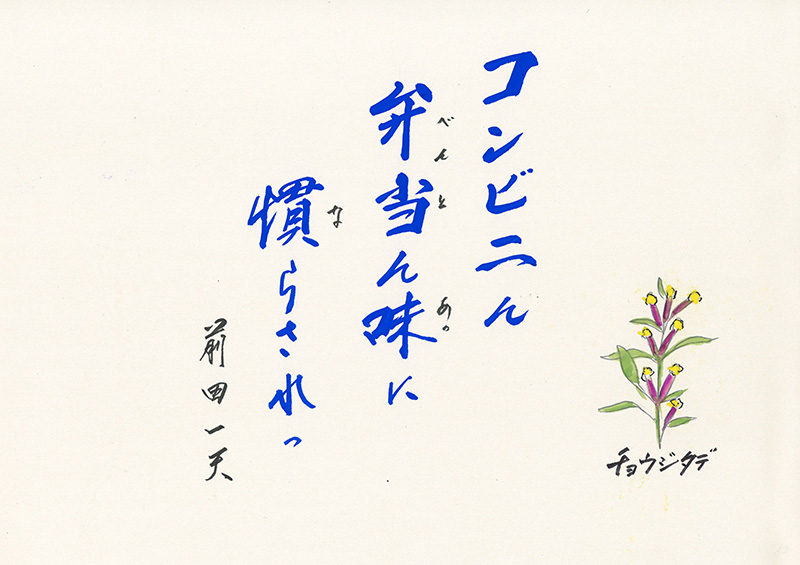 コンビニん
弁当ん味に
べんと
あっ
慣らされっ
な
前田一天
チョウジタデ